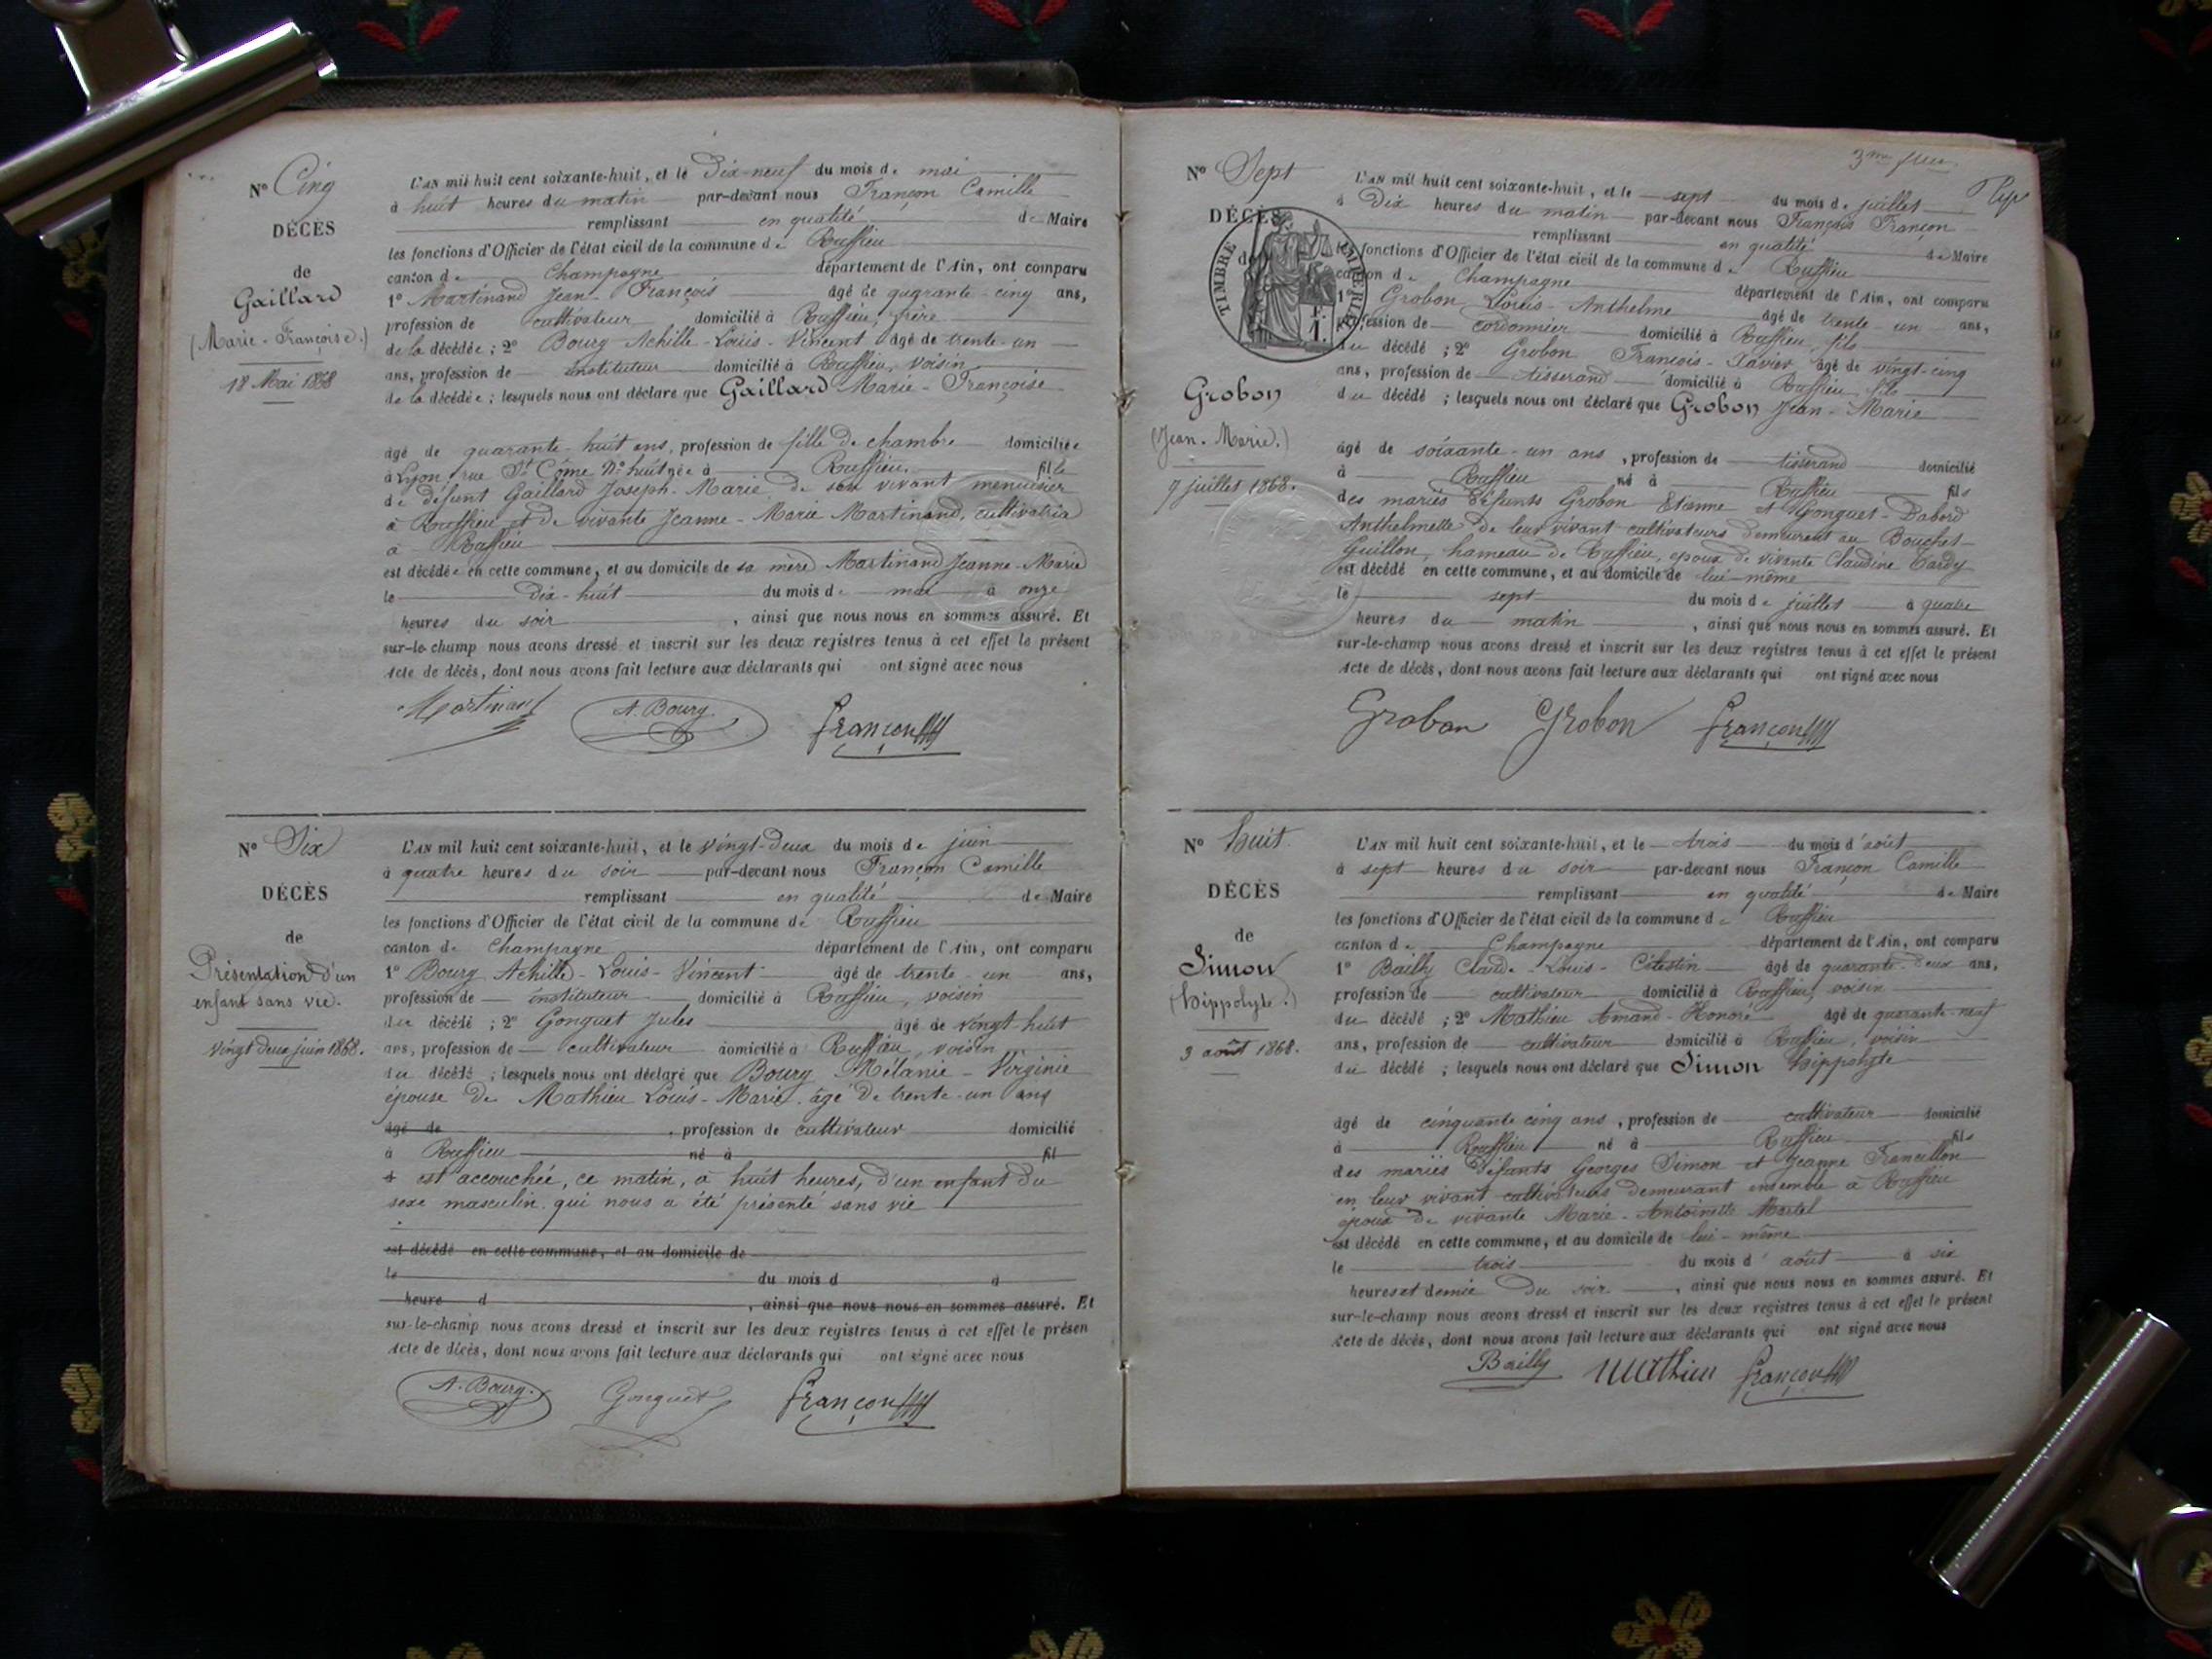 N° Cinq
DÉCÈS
de
Gaillard
(Marie-Françoise.)
18 Mai 1868
L'AN mil huit cent soixante-huit, et le Dix-neuf du mois de mai
à huit heures du matin par-devant nous Françon Camille
remplissant en qualité de Maire
les fonctions d'Officier de l'état civil de la commune de Ruffieu
canton de Champagne département de l'Ain, ont comparu
1° Martinand Jean-François âgé de quarante-cinq ans,
profession de cultivateur domicilié à Ruffieu, frère
de la décédée ; 2° Bourg Achille-Louis-Vincent âgé de trente-un
ans, profession de instituteur domicilié à Ruffieu, voisin
de la décédée ; lesquels nous ont déclaré que Gaillard Marie-Françoise
âgé de quarante-huit ans, profession de fille de chambre domiciliée
à Lyon, rue St Côme N° huit née à Ruffieu fille
de défunt Gaillard Joseph-Marie, de son vivant menuisier
à Ruffieu et de vivante Jeanne-Marie Martinand, cultivatrice
à Ruffieu
est décédée en cette commune, et au domicile de sa mère Martinand Jeanne-Marie
le dix-huit du mois de mai à onze
heures du soir, ainsi que nous nous en sommes assuré. Et
sur-le-champ nous avons dressé et inscrit sur les deux registres tenus à cet effet le présent
Acte de décès, dont nous avons fait lecture aux déclarants qui ont signé avec nous
Martinand A. Bourg Françon
N° Six
DÉCÈS
de
Présentation d'un
enfant sans vie.
vingt deux juin 1868.
L'AN mil huit cent soixante-huit, et le vingt-deux du mois de juin
à quatre heures du soir par-devant nous Françon Camille
remplissant en qualité de Maire
les fonctions d'Officier de l'état civil de la commune de Ruffieu
canton de Champagne département de l'Ain, ont comparu
1° Bourg Achille-Louis-Vincent âgé de trente-un ans,
profession de instituteur domicilié à Ruffieu, voisin
du décédé ; 2° Gonguet Jules âgé de vingt-huit
ans, profession de cultivateur domicilié à Ruffieu, voisin
du décédé ; lesquels nous ont déclaré que Bourg Mélanie-Virginie
épouse de Mathieu Louis-Marie âgé de trente-un ans
âgé de , profession de cultivateur domicilié
à Ruffieu né à fil
est accouchée, ce matin, à huit heures, d'un enfant du
sexe masculin qui nous a été présenté sans vie
est décédé en cette commune, et au domicile de
le du mois d à
heure d , ainsi que nous nous en sommes assuré. Et
sur-le-champ nous avons dressé et inscrit sur les deux registres tenus à cet effet le présen
Acte de décès, dont nous avons fait lecture aux déclarants qui ont signé avec nous
A. Bourg. Gonguet Françon
3me
N° Sept
DÉCÈS
de
TIMBRE IMPÉRIAL
1 F.
Grobon
(Jean-Marie.)
7 juillet 1868.
L'AN mil huit cent soixante-huit, et le sept du mois de juillet
à Dix heures du matin par-devant nous François Françon
remplissant en qualité de Maire
les fonctions d'Officier de l'état civil de la commune de Ruffieu
canton de Champagne département de l'Ain, ont comparu
1° Grobon Louis-Anthelme âgé de trente-un ans,
profession de cordonnier domicilié à Ruffieu, fils
du décédé ; 2° Grobon François-Xavier âgé de vingt-cinq
ans, profession de tisserand domicilié à Ruffieu, fils
du décédé ; lesquels nous ont déclaré que Grobon Jean-Marie
âgé de soixante-un ans, profession de tisserand domicilié
à Ruffieu né à Ruffieu fils
des mariés défunts Grobon Etienne et Gonguet-Dabord
Anthelmette de leur vivant cultivateurs demeurant au Bouchet-
Guillon, hameau de Ruffieu, époux de vivante Claudine Tardy
est décédé en cette commune, et au domicile de lui-même
le sept du mois de juillet à quatre
heures du matin, ainsi que nous nous en sommes assuré. Et
sur-le-champ nous avons dressé et inscrit sur les deux registres tenus à cet effet le présent
Acte de décès, dont nous avons fait lecture aux déclarants qui ont signé avec nous
Grobon Grobon Françon
N° huit
DÉCÈS
de
Simon
(hippolyte.)
3 août 1868.
L'AN mil huit cent soixante-huit, et le trois du mois d'août
à sept heures du soir par-devant nous Françon Camille
remplissant en qualité de Maire
les fonctions d'Officier de l'état civil de la commune de Ruffieu
canton de Champagne département de l'Ain, ont comparu
1° Bailly Claude-Louis-Célestin âgé de quarante-deux ans,
profession de cultivateur domicilié à Ruffieu, voisin
du décédé ; 2° Mathieu Amand-Honoré âgé de quarante-neuf
ans, profession de cultivateur domicilié à Ruffieu, voisin
du décédé ; lesquels nous ont déclaré que Simon hippolyte
âgé de cinquante cinq ans, profession de cultivateur domicilié
à Ruffieu né à Ruffieu fils
des mariés défunts Georges Simon et Jeanne Francillon
en leur vivant cultivateurs demeurant ensemble à Ruffieu
époux de vivante Marie-Antoinette Martel
est décédé en cette commune, et au domicile de lui-même
le trois du mois d'août à six
heures et demie du soir, ainsi que nous nous en sommes assuré. Et
sur-le-champ nous avons dressé et inscrit sur les deux registres tenus à cet effet le présent
Acte de décès, dont nous avons fait lecture aux déclarants qui ont signé avec nous
Bailly Mathieu Françon